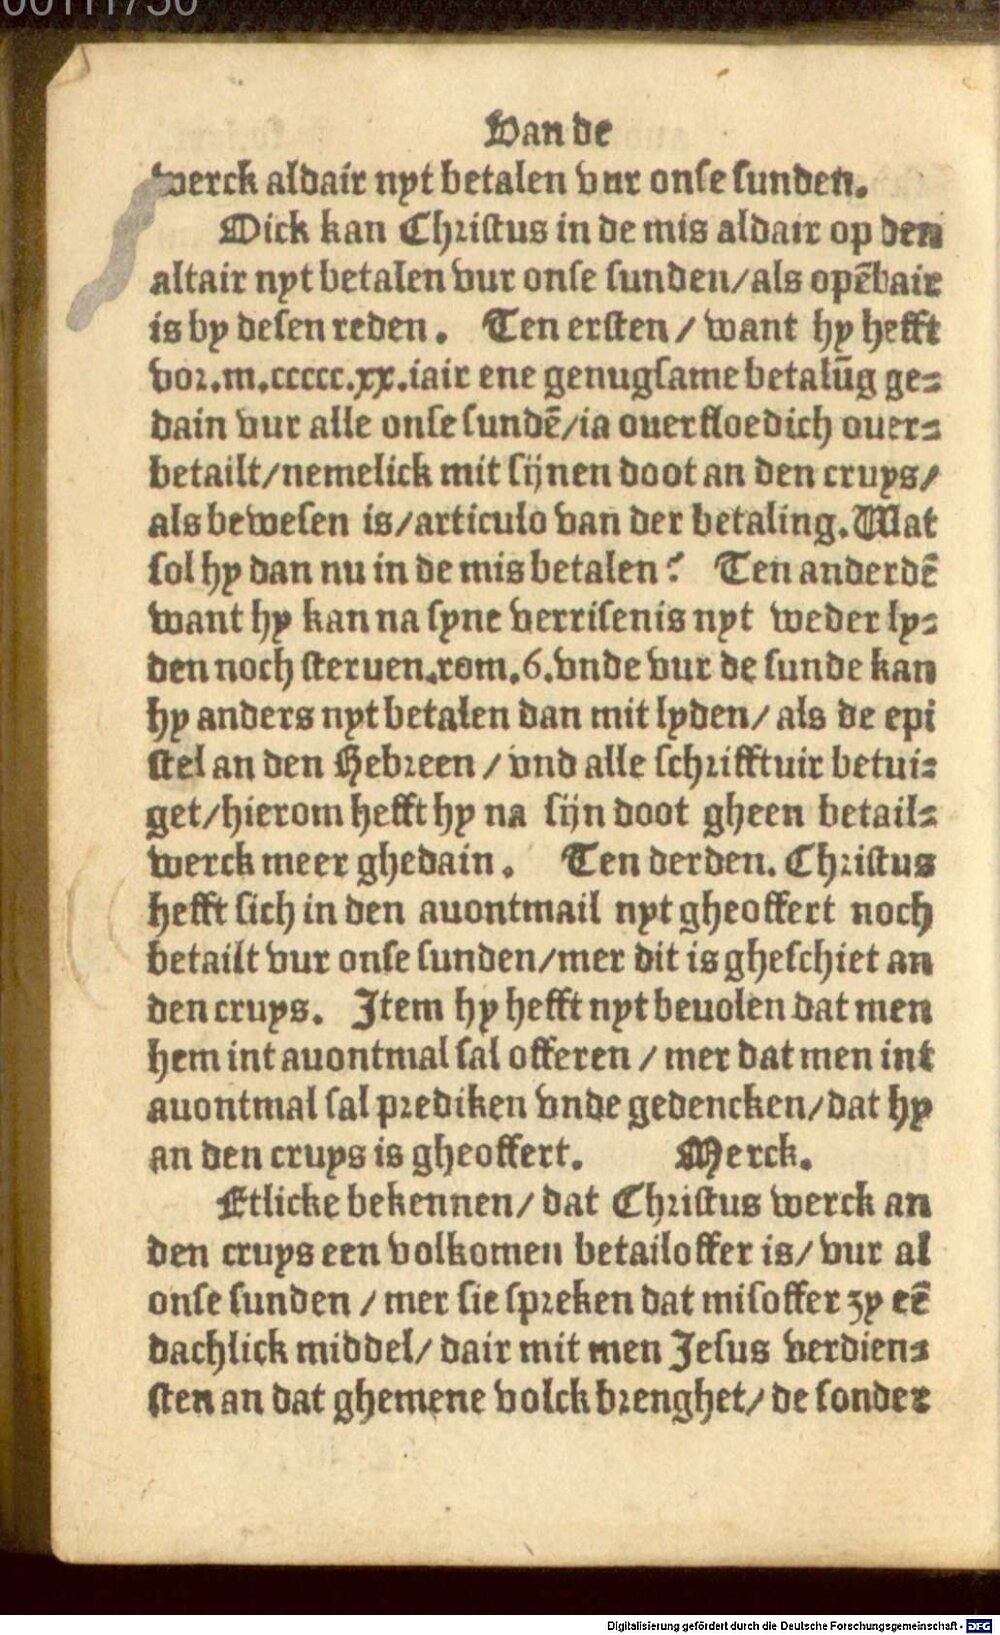 00111750
Van de
werck aldair nyt betalen vur onse sunden.
Oick kan Christus in de mis aldair op den
altair nyt betalen vur onse sunden/als opēbair
is by desen reden. Ten ersten / want hy hefft
vor.m.ccccc.xx.iair ene genugsame betalūg ge⸗
dain vur alle onse sundē/ia ouerfloedich ouer⸗
betailt/nemelick mit sijnen doot an den cruys/
als bewesen is/articulo van der betaling. Wat
sol hy dan nu in de mis betalen? Ten anderdē
want hy kan na syne verrisenis nyt weder ly⸗
den noch steruen.rom.6.vnde vur de sunde kan
hy anders nyt betalen dan mit lyden/ als de epi
stel an den Hebreen / vnd alle schrifftuir betui⸗
get/hierom hefft hy na sijn doot gheen betail⸗
werck meer ghedain. Ten derden. Christus
hefft sich in den auontmail nyt gheoffert noch
betailt vur onse sunden/mer dit is gheschiet an
den cruys. Item hy hefft nyt beuolen dat men
hem int auontmal sal offeren / mer dat men int
auontmal sal prediken vnde gedencken/dat hy
an den cruys is gheoffert. Merck.
Etlicke bekennen/ dat Christus werck an
den cruys een volkomen betailoffer is/ vur al
onse sunden / mer sie spreken dat misoffer zy eē
dachlick middel/ dair mit men Jesus verdien⸗
sten an dat ghemene volck brenghet/ de sonder
Digitalisierung gefördert durch die Deutsche Forschungsgemeinschaft - DFG